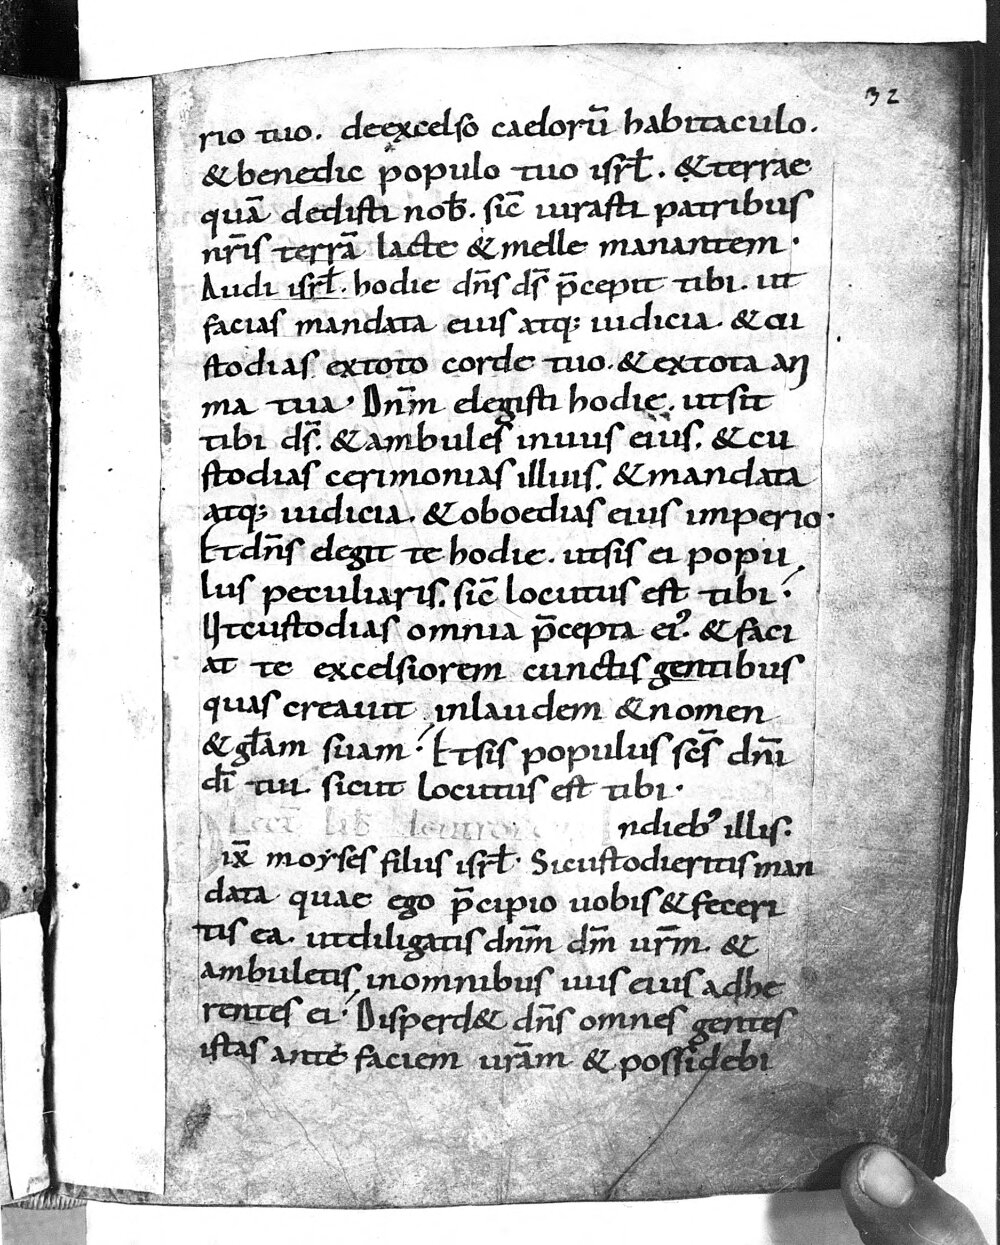 32
rio tuo. deexcelso caelorū habitaculo.
&benedic populo tuo isrł. &terrae
quā dedisti nob̄. sic̄ iurasti patribus
nr̄is terrā lacte &melle manantem.
Audi isrł. hodie dn̄s ds̄ p̄cepit tibi. ut
facias mandata eius atq; iudicia. &cu
stodias extoto corde tuo. &extota ani
ma tua. Dn̄m elegisti hodie. utsit
tibi ds̄. &ambules inuiis eius. &cu
stodias cerimonias illius. &mandata
atq; iudicia. &oboedias eius imperio.
Etdn̄s elegit te hodie. utsis ei popu
lus peculiaris. sic̄ locutus est tibi.
Utcustodias omnia p̄cepta ei'. &faci
at te excelsiorem cunctis gentibus
quas creauit inlaudem &nomen
&głam suam. Etsis populus sc̄s dn̄i
dī tui. sicut locutus est tibi.
Lect̄ Lib̄ deutro ndieb' illis.
ix̄ moyses filiis isrł. Sicustodieritis man
data quae ego p̄cipio uobis &feceri
tis ea. utdiligatis dn̄m dm̄ ur̄m. &
ambuletis inomnibus uiis eius adhe
rentes ei. Disperd& dn̄s omnes gentes
istas ante faciem urām &possidebi